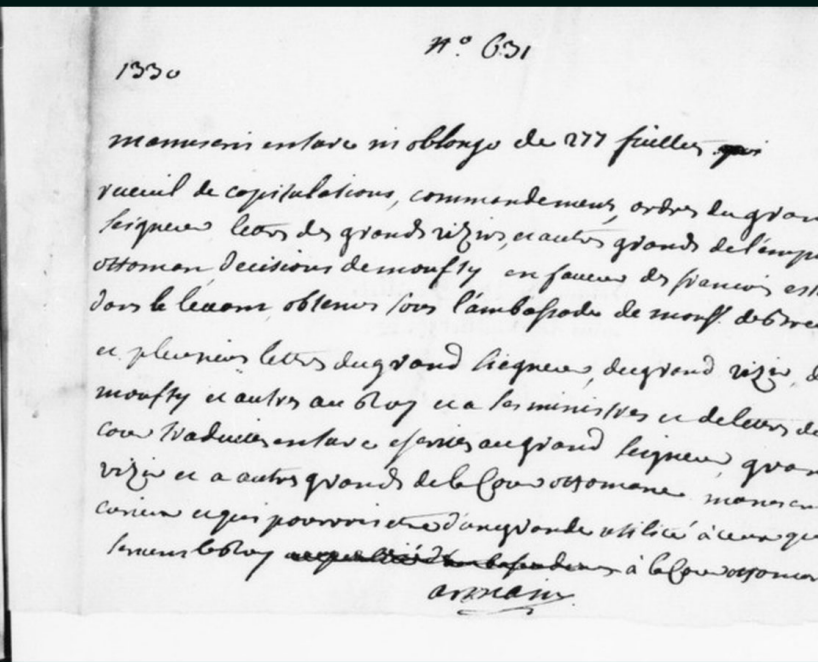 N.º 631
1330
manuscrit en turc in oblongo de 277 feuilles
recueil de capitulations, commandemens, ordres du gran
seigneur lettres des grands vizirs, et autres grands de l'empi
ottoman, decisions de moufty en faveur des francois
dans le levant, obtenus sous l'ambassade de monsr de
et plusieurs lettres du grand seigneur, du grand vizir, d
moufty et autres au Roy et a ses ministres et de lettres de
cour traduites en turc escrites au grand seigneur, gran
vizir et a autres grands de la Cour ottomane manuscri
curieux et qui pourroit etre d'une grande utilité à ceux qu
servent le Roy à la Cour ottoman
armain